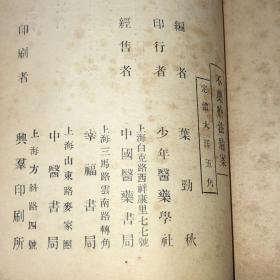 不藥療法驗案
定價大洋五角
編者 葉勁秋
印行者 少年醫藥學社
上海白克路西祥康里七七號
經售者 中國醫藥書局
上海三馬路雲南路轉角
幸福書局
上海山東路麥家圈
中醫書局
上海方斜路四號
印刷者 興羣印刷所